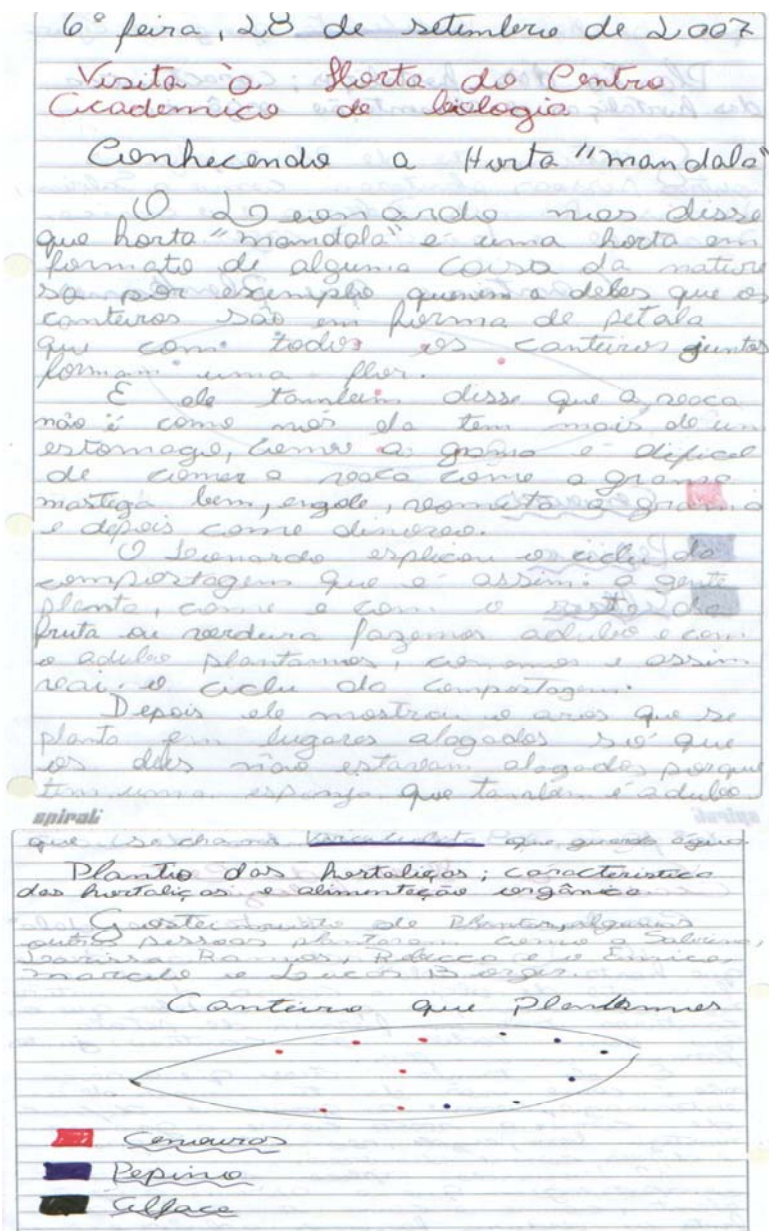 6ª feira, 28 de setembro de 2007
Visita à Horta do Centro
Academico de biologia
Conhecendo a Horta "mandala"
O Leonardo nos disse
que horta "mandala" é uma horta em
formato de alguma coisa da nature
sa por exemplo quenem a deles que os
canteiros são em forma de petala
que com todos os canteiros juntos
formam uma flor.
E ele tambem disse que a vaca
não é como nós ela tem mais de um
estomago, como a grama é dificel
de comer a vaca come a grama
mastega bem, engole, vomita a grama
e depois come dinovo.
O Leonardo esplicou o ciclu da
comportagem que é assim: a gente
planta, come e com o resto da
fruta ou verdura fazemos adubo e com
o adubo plantamos, comemos e assim
vai o ciclu da comportagem.
Depois ele mostrou o aros que se
planta em lugares alagados só que
os deles não estavam alagados porque
tem uma esponja que tambem é adubo
spiral
que se chama que guarda água
Plantio das hortaliças; caracteristica
das hortaliças e alimentação orgânica
Gostei muito de plantar, alguams
outra pessoas plantaram como a Sabrina,
Larissa Ramos, Rebecca e o Enrico,
marcelo e Lucas Borges.
Canteiro que plantamos
Cenouras
Pepino
Alface